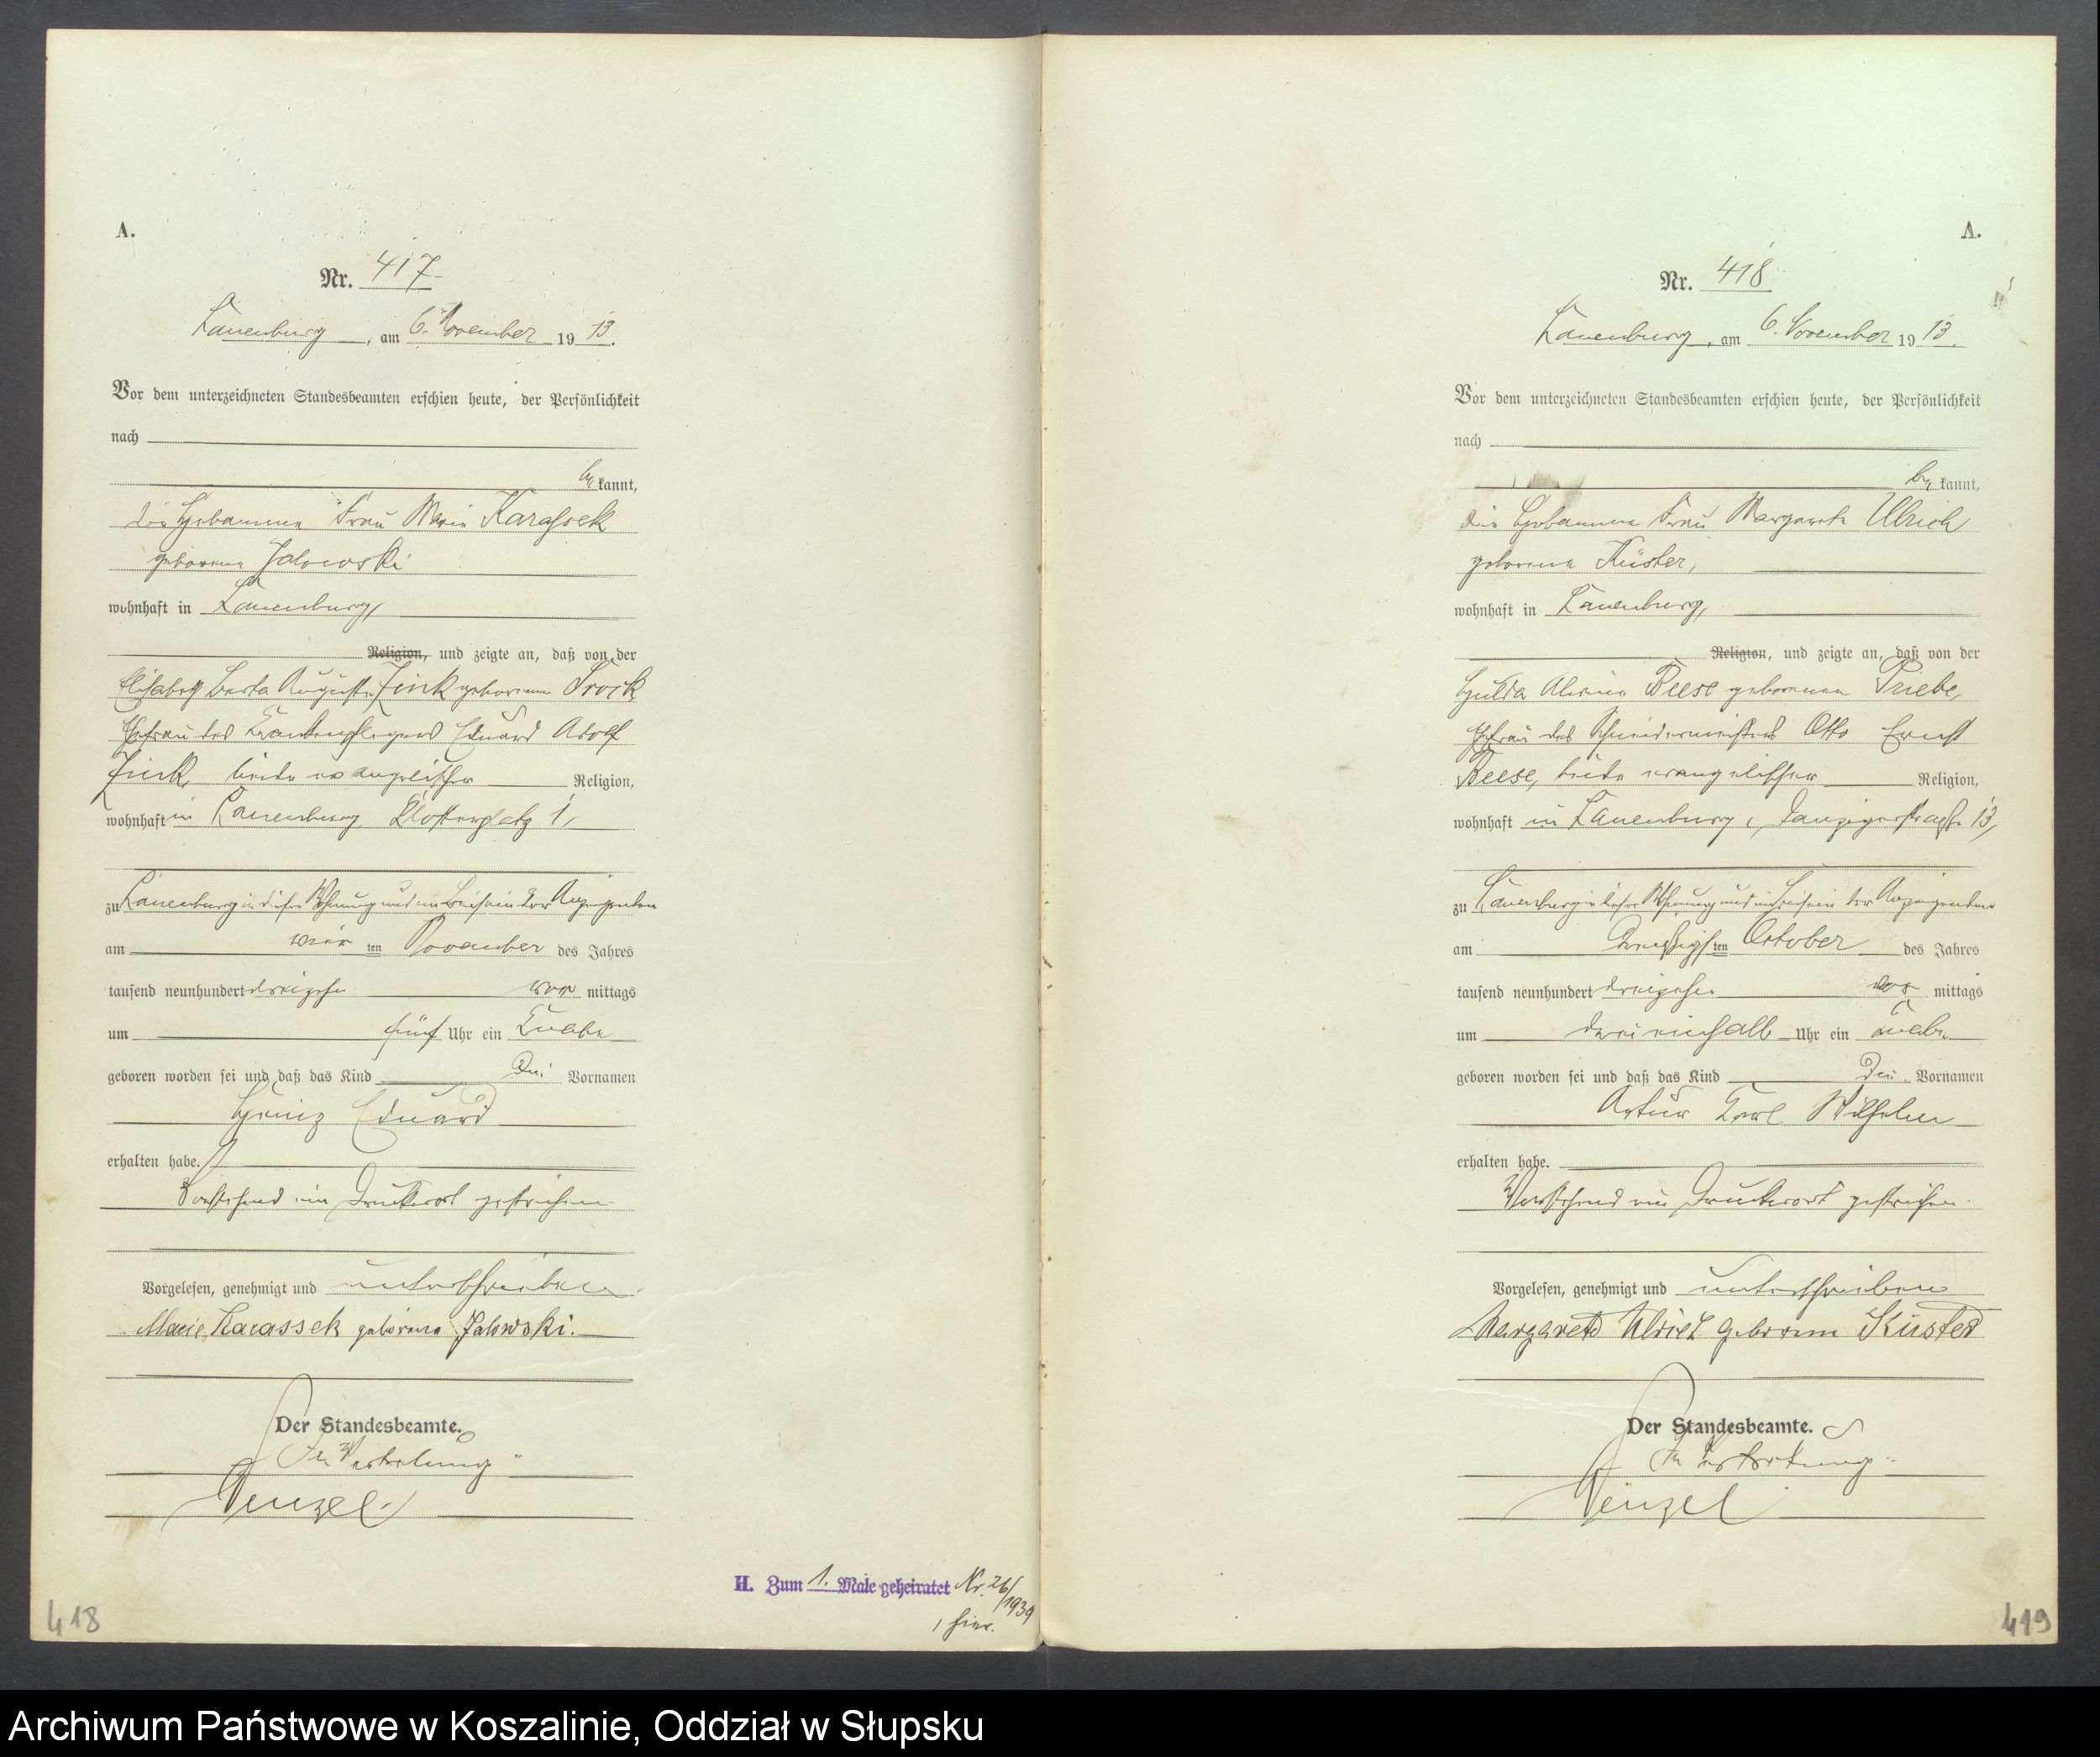 A.
Nr. 417
Lauenburg, am 6. November 1913.
Vor dem unterzeichneten Standesbeamten erschien heute, der Persönlichkeit
nach
bekannt,
die Hebamme Frau Marie Karassek
geborene Jalowski
wohnhaft in Lauenburg,
Religion, und zeigte an, daß von der
Elisabeth Berta Auguste Zink geborenen Trock
Ehefrau des Krankenpflegers Eduard Adolf
Zink, beide evangelischer Religion,
wohnhaft in Lauenburg Klosterplatz 1,
zu Lauenburg in dieser Wohnung und im Beisein der Anzeigenden
am vierten November des Jahres
tausend neunhundert dreizehn vor mittags
um fünf Uhr ein Knabe
geboren worden sei und daß das Kind die Vornamen
Heinz Eduard
erhalten habe.
Vorstehend ein Druckwort gestrichen.
Vorgelesen, genehmigt und unterschrieben
Marie Karassek geborene Jalowski.
Der Standesbeamte.
In Vertretung
Wenzel
H. Zum 1. Male geheiratet Nr. 26/1939
hier.
418
A.
Nr. 418
Lauenburg, am 6. November 1913.
Vor dem unterzeichneten Standesbeamten erschien heute, der Persönlichkeit
nach
bekannt,
die Hebamme Frau Margarete Ulrich
geborene Küster,
wohnhaft in Lauenburg,
Religion, und zeigte an, daß von der
Hulda Alwine Reese geborenen Priebe,
Ehefrau des Schneidermeisters Otto Ernst
Reese, beide evangelischer Religion,
wohnhaft in Lauenburg, Danzigerstraße 13,
zu Lauenburg in dieser Wohnung und im Beisein der Anzeigenden
am dreißigsten October des Jahres
tausend neunhundert dreizehn vor mittags
um dreieinhalb Uhr ein Knabe
geboren worden sei und daß das Kind die Vornamen
Artur Karl Wilhelm
erhalten habe.
Vorstehend ein Druckwort gestrichen.
Vorgelesen, genehmigt und unterschrieben
Margarete Ulrich geborene Küster
Der Standesbeamte.
In Vertretung
Wenzel
419
Archiwum Państwowe w Koszalinie, Oddział w Słupsku